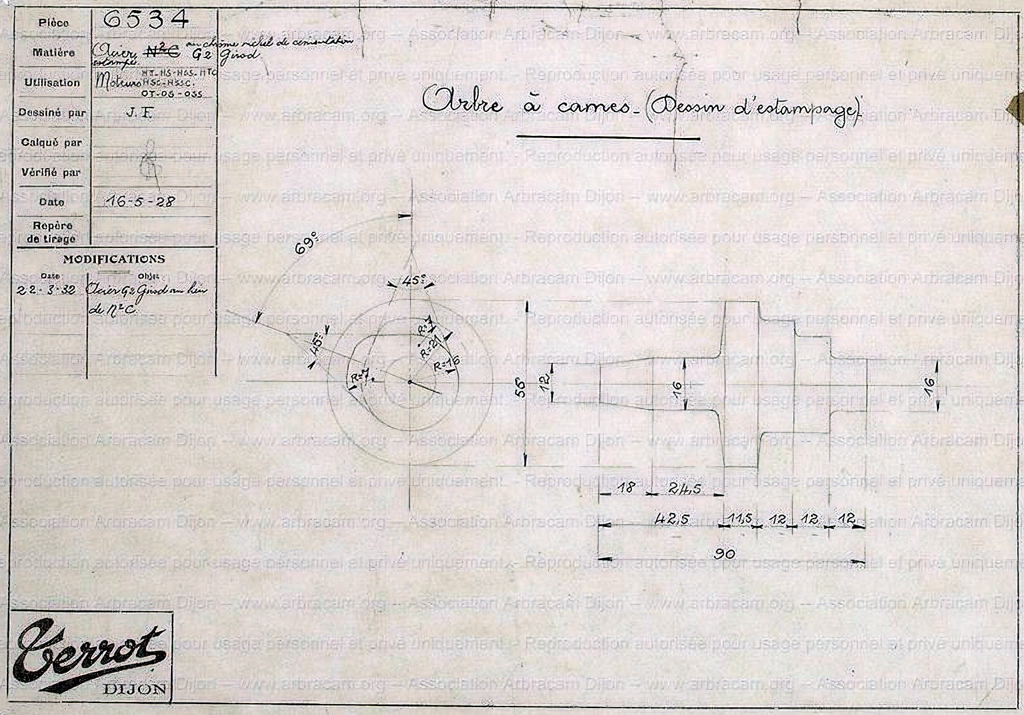 Pièce 6534
Matière Acier N°C au chrome nickel de cementation
estampé. G2 Girod
Utilisation Moteurs HT-HS-HSS-HTC
HSC-HSSC.
OT-OS-OSS
Dessiné par J.F.
Calqué par
Vérifié par
Date 16-5-28
Repère
de tirage
MODIFICATIONS
Date Objet
22-3-32 Acier G2 Girod au lieu
de N°C
Arbre à cames_(Dessin d'estampage).
69°
45°
45°
R=7
R=21
R=16
R=7
55
12
16
16
18 24,5
42,5 11,5 12 12 12
90
Terrot
DIJON
www.arbracam.org – Association Arbracam Dijon
Reproduction autorisée pour usage personnel et privé uniquement.